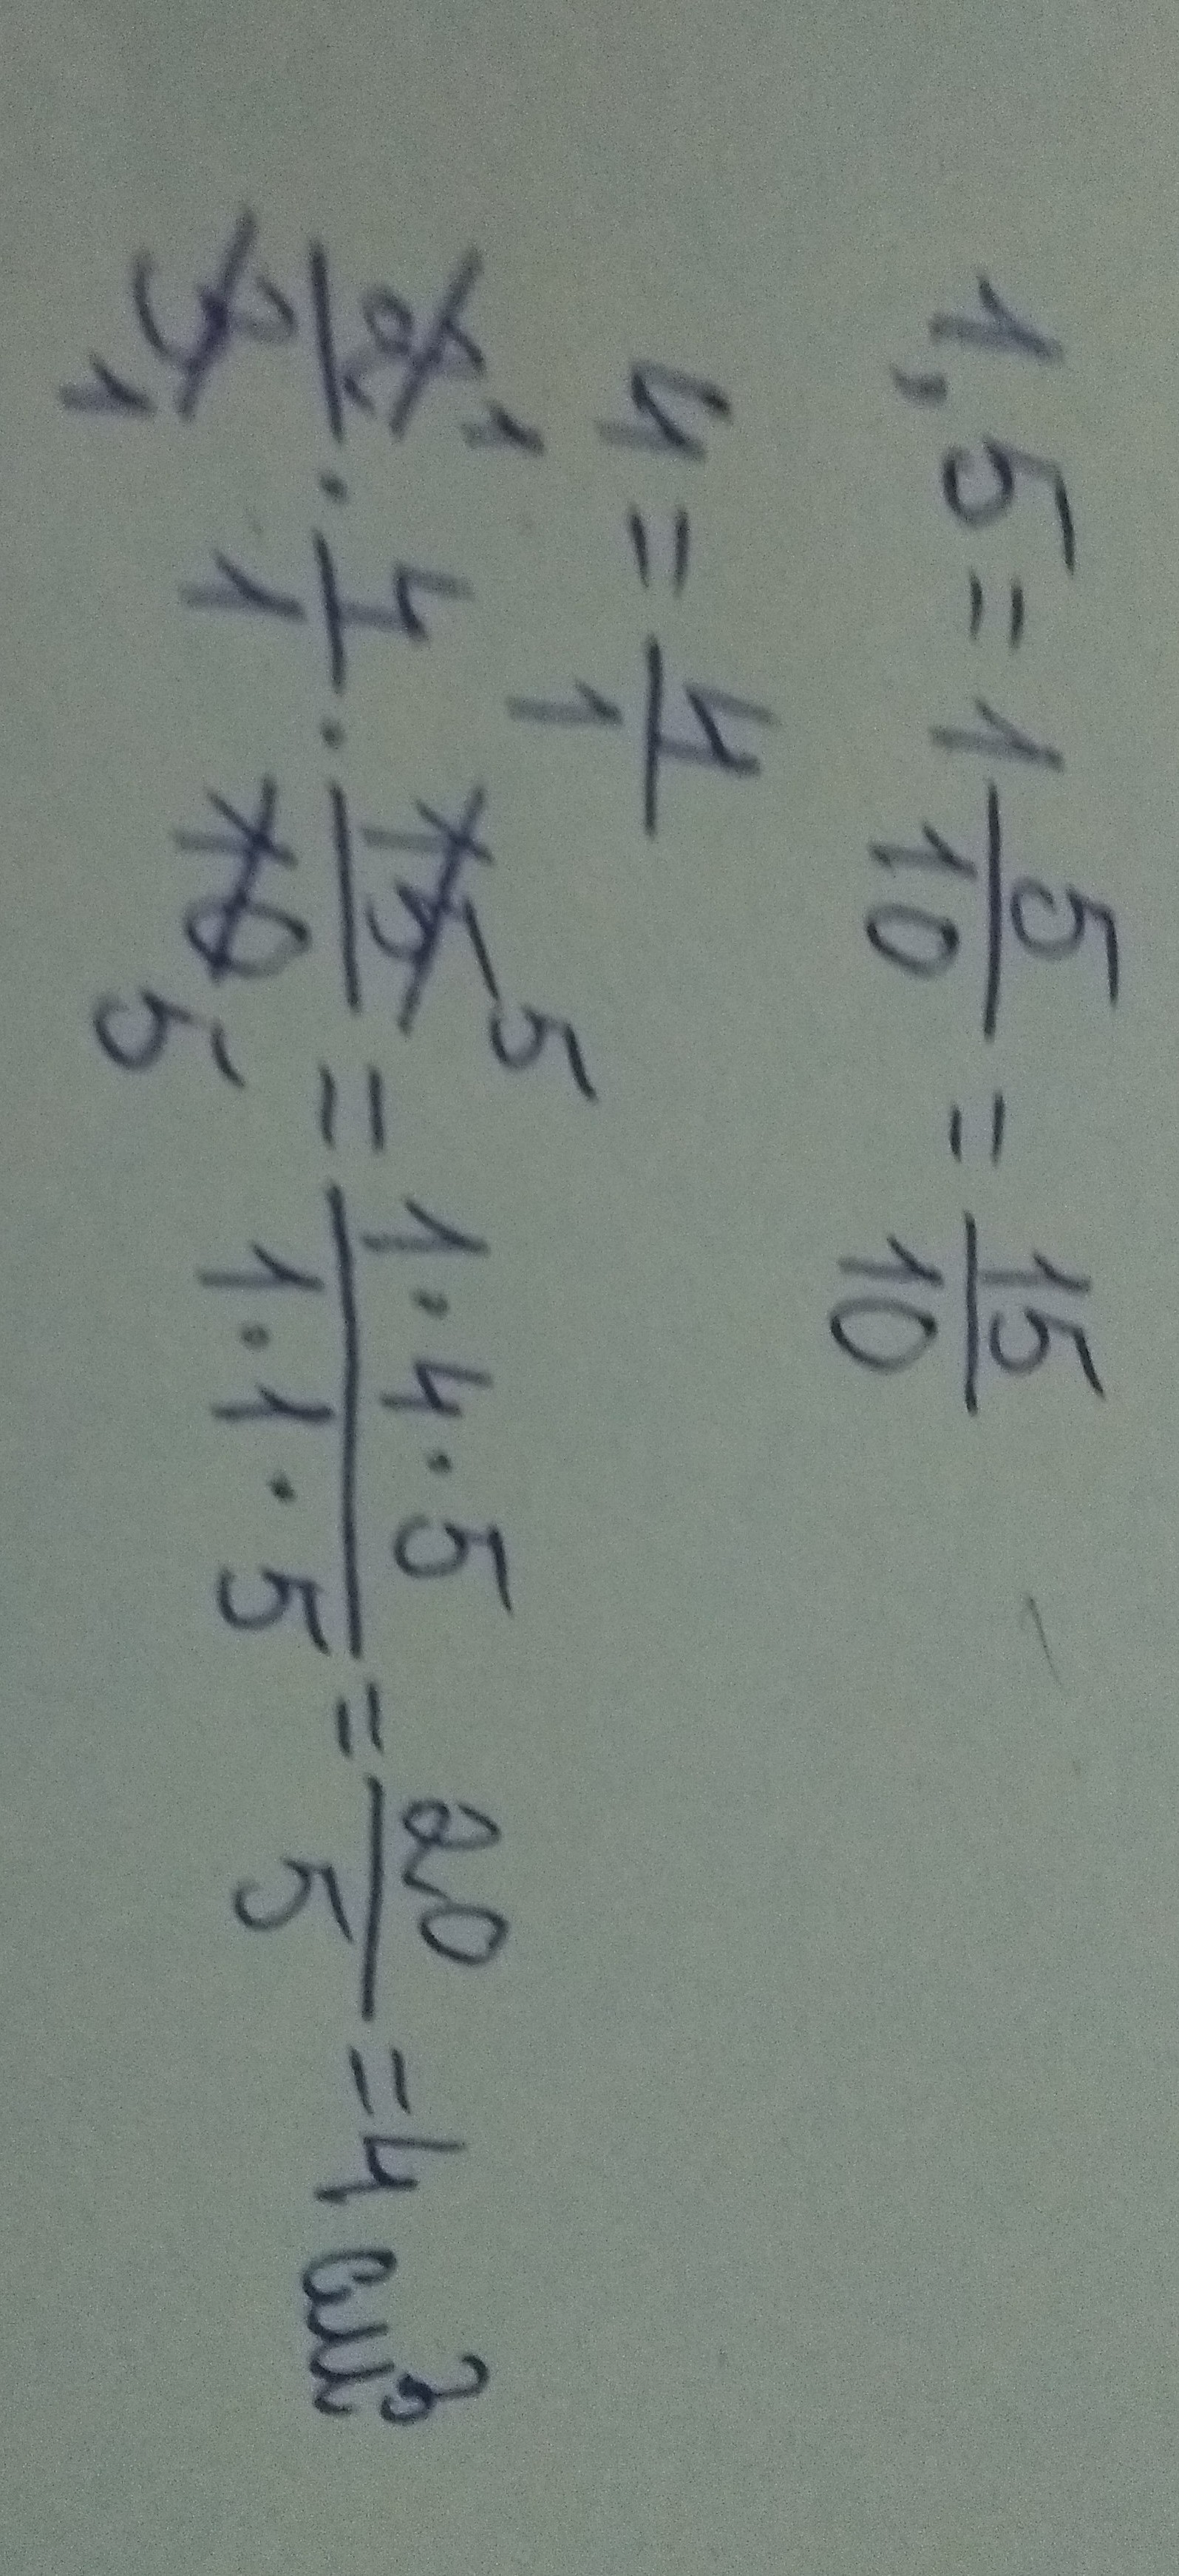 1,5 = 1 5/10 = 15/10
4 = 4/1
2̶ 1/3̶ 1 · 4/1 · 1̶5̶ 5/1̶0̶ 5 = 1·4·5/1·1·5 = 20/5 = 4 см³